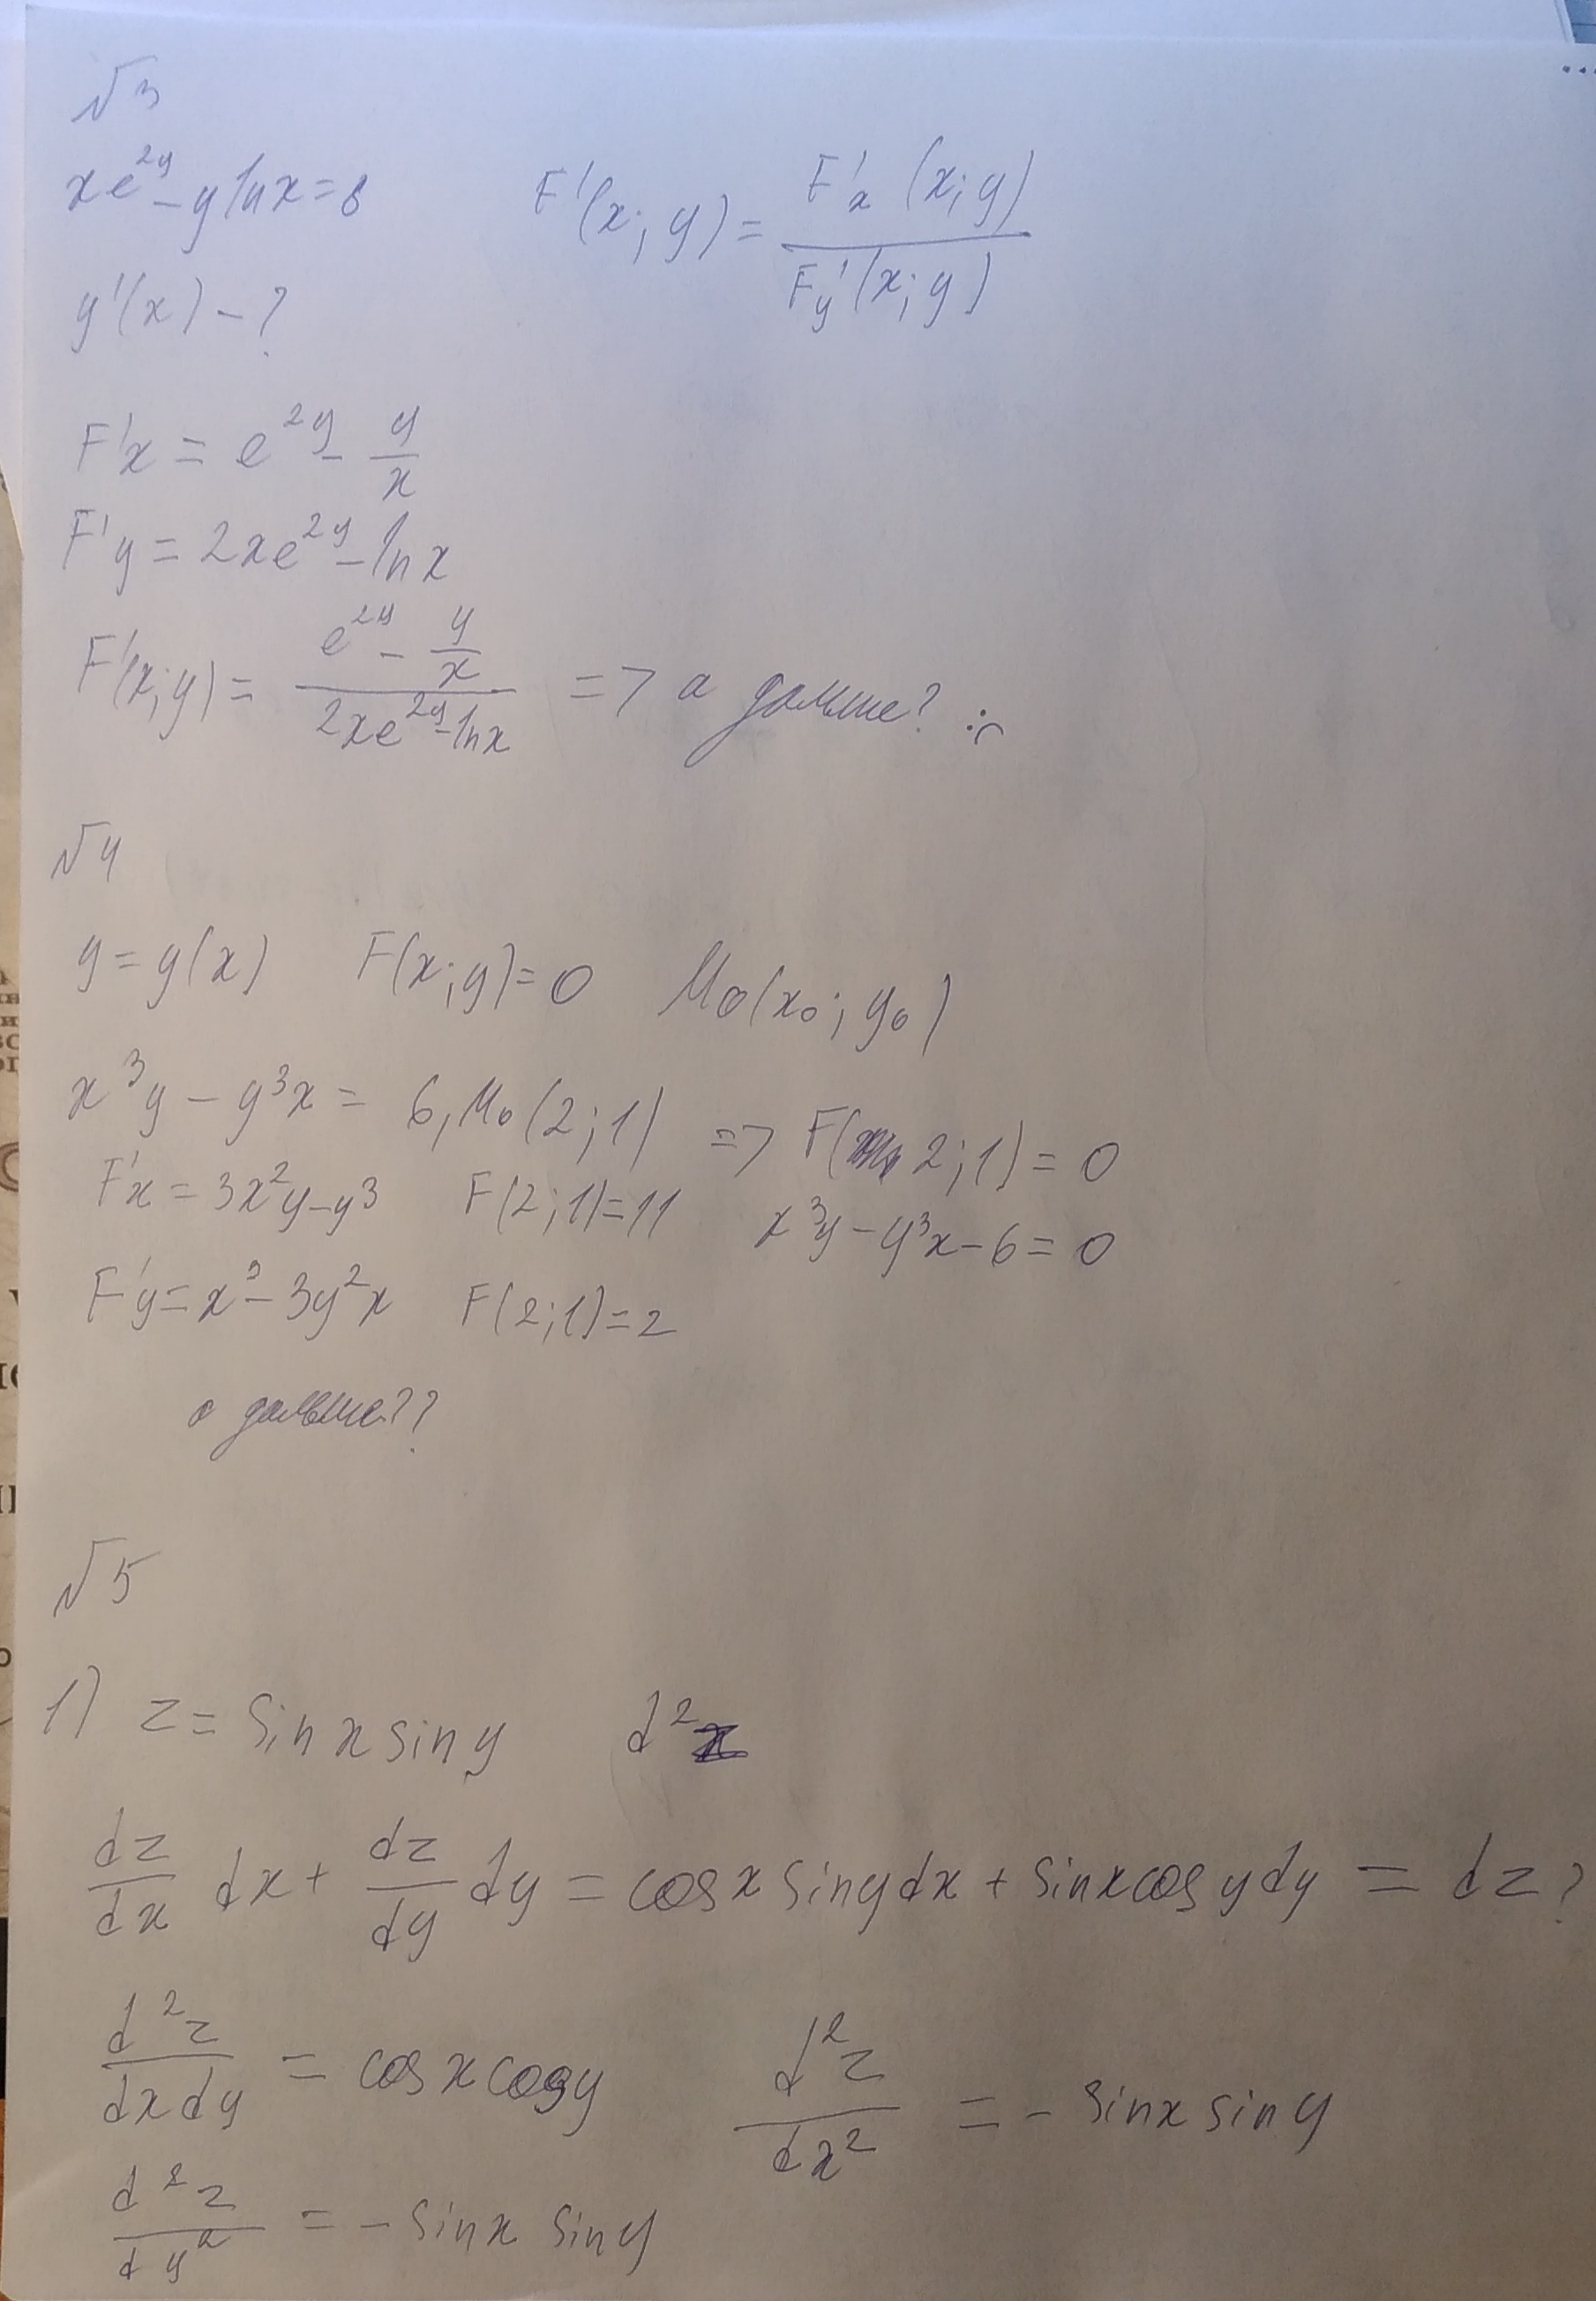 √3
xe^{2y} - y ln x = 8
F'(x; y) = F'x (x; y) / Fy' (x; y)
y'(x) - ?
F'x = e^{2y} - y/x
F'y = 2xe^{2y} - ln x
F'(x; y) = (e^{2y} - y/x) / (2xe^{2y} - ln x) => а дальше? :(
√4
y = y(x) F(x; y) = 0 M0(x0; y0)
x^3y - y^3x = 6, M0(2; 1) => F(2; 1) = 0
F'x = 3x^2y - y^3 F(2; 1) = 11 x^3y - y^3x - 6 = 0
F'y = x^3 - 3y^2x F(2; 1) = 2
а дальше??
√5
1) z = sin x sin y d^2z
dz/dx dx + dz/dy dy = cos x sin y dx + sin x cos y dy = dz?
d^2z/dxdy = cos x cos y d^2z/dx^2 = - sin x sin y
d^2z/dy^2 = - sin x sin y